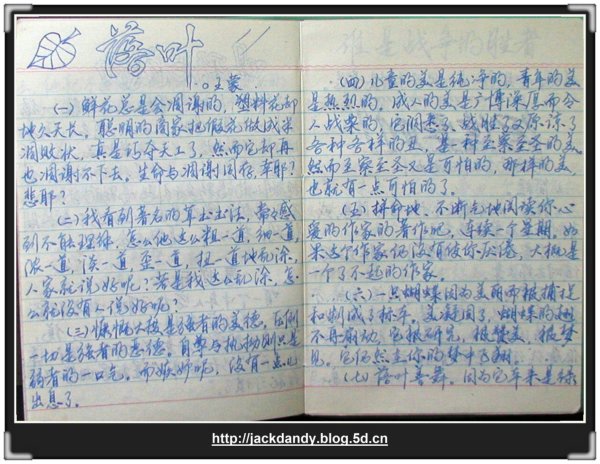 落叶
。王蒙
(一) 鲜花总是会凋谢的, 塑料花却
地久天长, 聪明的商家把假花做成半
凋败状, 真是巧夺天工了, 然而它却再
也凋谢不下去。生命与凋谢同存, 幸耶?
悲耶?
(二) 我看到著名的草书书法, 常々感
到不能理继, 怎么他这么粗一道, 细一道,
浓一道, 淡一道 歪一道, 扭一道地乱涂,
人家就说好呢? 若是我这么乱涂, 怎
么就没有人说好呢?
(三) 慷慨大概是强者的美德, 压倒
一切是强者的恶德。自尊与执拗则只是
弱者的一口气。而嫉妒呢, 没有一点儿
出息了。
谁是战争的胜者
(四) 儿童的美是纯净的, 青年的美
是热烈的, 成人的美是广博深厚而令
人战栗的, 它洞悉了、战胜了又原谅了
各种各样的丑, 是一种至察至圣的美。
然而至察至圣又是可怕的, 那样的美
也就有一点可怕的了。
(五) 拼命地、不断气地阅读你心
爱的作家的著作吧, 连续一个星期, 如
果这个作家仍没有使你厌倦, 大概是
一个了不起的作家。
(六) 一只蝴蝶因为美丽而被捕捉
和制成了标本。美凝固了, 蝴蝶的翅
不再扇动, 它被研究, 被赞美, 被梦
见。它仍然在你的梦中飞翔。
(七) 落叶善舞。因为它本来是绿
http://jackdandy.blog.5d.cn